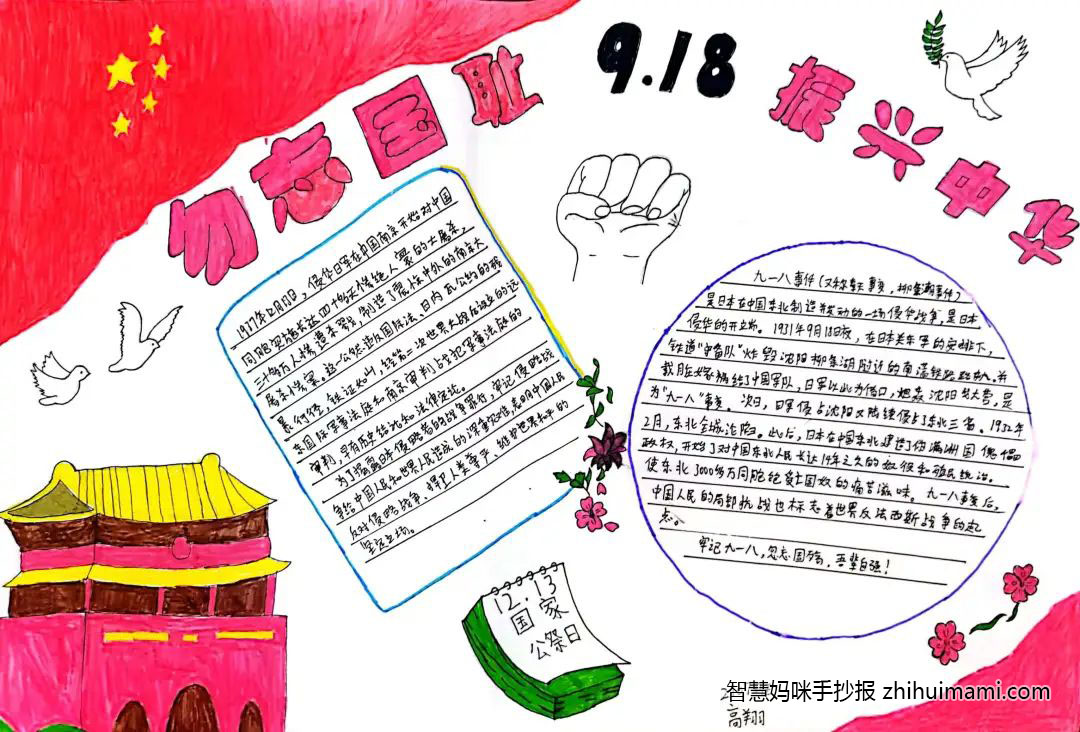 勿忘国耻
9.18
振兴中华
1937年12月13日，侵华日军在中国南京开始对中国
同胞实施长达四十多天惨绝人寰的大屠杀，
三十多万人惨遭杀戮，制造了震惊中外的南京大
屠杀惨案。这一公然违反国际法、日内瓦公约的残
暴行径，铁证如山，经第二次世界大战后设立的远
东国际军事法庭和南京审判战犯军事法庭的
审判，早有历史结论和法律定论。
为了揭露日本侵略者的战争罪行，牢记侵略战
争给中国人民和世界人民造成的深重灾难，表明中国人民
反对侵略战争、捍卫人类尊严、维护世界和平的
坚定立场。
九一八事变（又称奉天事变，柳条湖事件）
是日本在中国东北制造并发动的一场侵华战争，是日本
侵华的开端。1931年9月18日夜，在日本关东军的安排下，
铁道“守备队”炸毁沈阳柳条湖附近的南满铁路路轨，并
栽脏嫁祸给了中国军队，日军以此为借口，炮轰沈阳北大营，是
为“九一八”事变。次日，日军侵占沈阳又陆续侵占了东北三省。1932年
2月，东北全域沦陷。此后，日本在中国东北建立了伪满洲国傀儡
政权，开始了对中国东北人民长达14年之久的奴役和殖民统治。
使东北3000多万同胞饱受亡国奴的痛苦滋味。九一八事变后，
中国人民的局部抗战也标志着世界反法西斯战争的起
点。
牢记九一八，忽忘国殇，吾辈自强！
12.13
国家
公祭日
高翔
智慧妈咪手抄报 zhihuimami.com